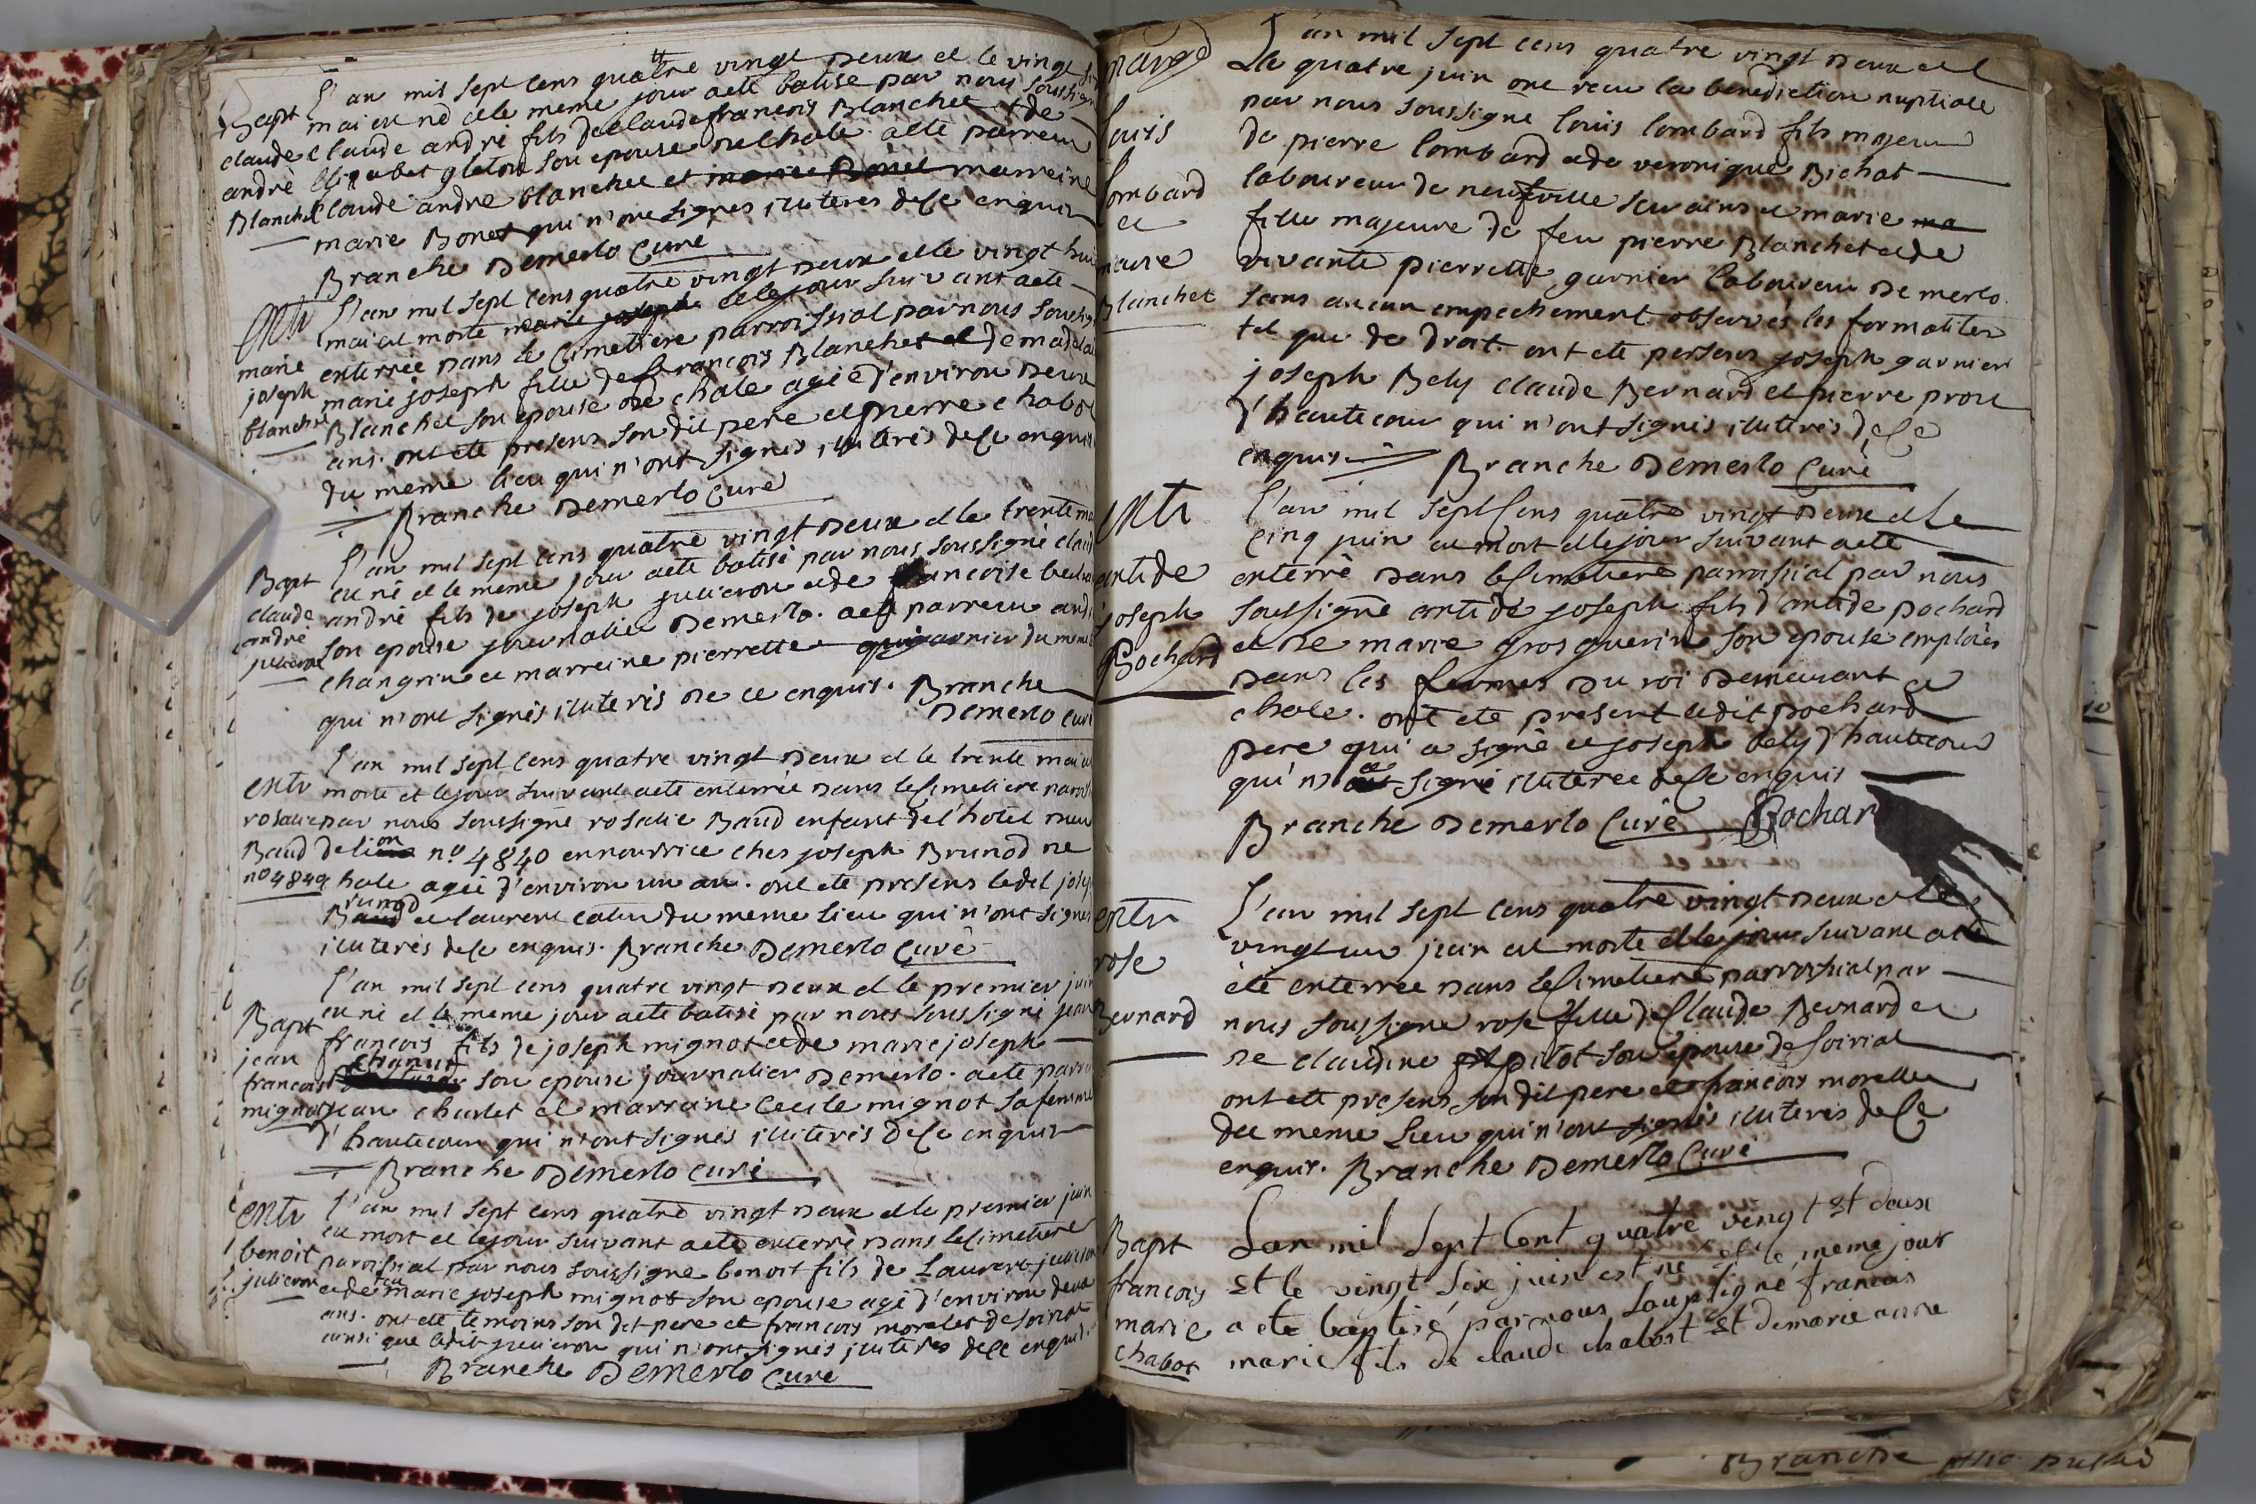 Bapt
claude
andrè
Blanchet
L'an mil sept cens quatre vingt deux et le vingt
mai eu né et le meme jour a ete batisé par nous soussigné
claude andré fils de claude francois Blanchet et de
son epouse de chale. a ete parrein
claude andre blanchet et marie Bonet marreine
marie Bonet qui n'ont signés illiteres de ce enquis
Branche Demerlo Curé
entr
marie
joseph
blanchet
L'an mil sept cens quatre vingt deux et le vingt huit
mai est morte marie joseph et le jour suivant a ete
enterrée dans le cimetiere parroissial par nous soussigné
marie joseph fille de francois Blanchet et de
Blanchet son epouse de chale agée d'environ deux
ans. ont ete presens son dit pere et pierre chabot
du meme lieu qui n'ont signés illiterés de ce enquis
Branche Demerlo Curé
Bapt
claude
andrè
julieron
L'an mil sept cens quatre vingt deux et le trente mai
eu né et le meme jour a ete batisé par nous soussigné claude
andré fils de joseph julieron et de francoise
son epouse journalier Demerlo. a ete parrein andré
changrin et marreine pierrette garnier du meme
qui n'ont signés illiterés de ce enquis. Branche
Demerlo curé
entr
rosalie
Baud
no 4849
L'an mil sept cens quatre vingt deux et le trente mai est
morte et le jour suivant a ete enterrée dans le cimetiere parroissial
par nous soussigné rosalie Baud enfant de l'hotel dieu
de lion no 4840 en nourrice ches joseph Brunod de
chale agée d'environ un an. ont ete presens ledit joseph
Brunod et laurent du meme lieu qui n'ont signés
illiterés de ce enquis. Branche Demerlo Curé
Bapt
jean
francois
mignot
L'an mil sept cens quatre vingt deux et le premier juin
eu né et le meme jour a ete batisé par nous soussigné jean
francois fils de joseph mignot et de marie joseph
chanut son epouse journalier Demerlo. a ete parrein
jean charlet et marraine Cecile mignot sa femme
d'hautecour qui n'ont signés illiterés de ce enquis
Branche Demerlo Curé
entr
benoit
julieron
L'an mil sept cens quatre vingt deux et le premier juin
eu mort et le jour suivant a ete enterré dans le cimetiere
paroissial par nous soussigné benoit fils de Laurent julieron
et de feu marie joseph mignot son epouse agé d'environ deux
ans. ont ete temoins son dit pere et francois morelet de soiriat
ainsi que ledit julieron qui n'ont signés illiterés de ce enquis
Branche Demerlo Curé
mange
louis
lombard
et
marie
Blanchet
L'an mil sept cens quatre vingt deux et
Le quatre juin ont recu la benediction nuptiale
par nous soussigné louis lombard fils majeur
de pierre lombard et de veronique Bichat
laboureur de neufville sur ains et marie ma
fille majeure de feu pierre Blanchet et de
vivante pierrette garnier laboureur Demerlo.
sans aucun empechement observés les formalites
tel que de droit. ont ete presens joseph garnier
joseph Bely claude Bernard et pierre prou
d'hautecour qui n'ont signés illiterés de ce
enquis Branche Demerlo Curé
entr
antide
joseph
Bochard
L'an mil sept Cens quatre vingt deux et le
cinq juin eu mort et le jour suivant a ete
enterré dans le Cimetiere parroissial par nous
soussigné antide joseph fils d'antide pochard
et de marie gros guerin son epouse emploiés
dans les fermes du roi demeurant a
chale. ont ete present ledit pochard
pere qui a signé et joseph bely d'hautecour
qui n'a signé illiteree de ce enquis
Branche Demerlo Curé Bochar
entr
rose
Bernard
L'an mil sept cens quatre vingt deux et le
vingt un juin est morte et le jour suivant a ete
été enterree dans le Cimetiere parroissial par
nous soussigné rose fille de Claude Bernard et
de claudine pitot son epouse de soiriat
ont ete presens son dit pere et francois morellet
du meme lieu qui n'ont signés illiterés de ce
enquis. Branche Demerlo Curé
Bapt
francois
marie
chabot
Lan mil Sept Cent quatre vingt et deux
Et le vingt six juin est né et le meme jour
a ete baptisé par nous soussigné francois
marie fils de claude chabot et de marie anne
Branche